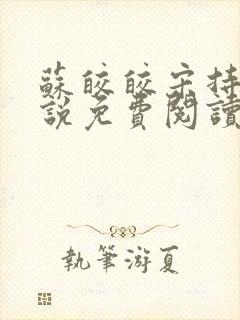 蘇皎皎宋持
說免費閱讀
執筆游夏